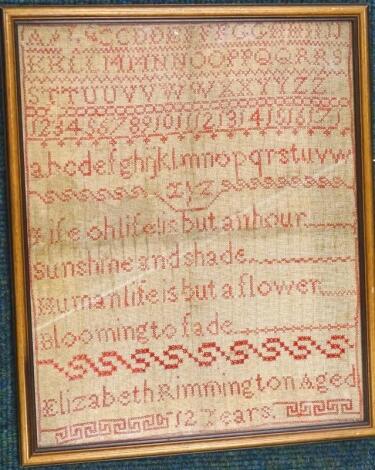 AABBCCDDEEFFGGHHIIJJ
KKLLMMNNOOPPQQRRS
STTUUVVWWXXYYZZ
1234567891011121314151617
abcdefghijklmnopqrstuvw
xyz
Life oh life is but an hour
Sunshine and shade
Human life is but a flower
Blooming to fade
Elizabeth Rimmington Aged
12 Years.